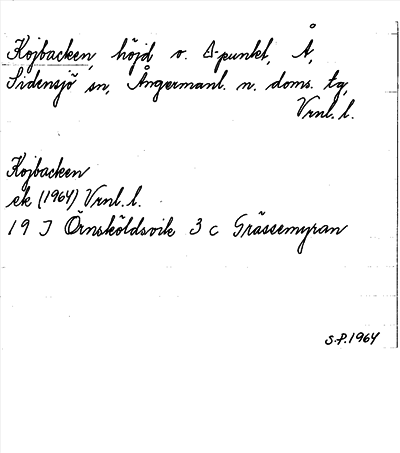 Kojbacken, höjd o. Δ-punkt, Å,
Sidensjö sn, Ångermanl. n. doms. tg,
Vrnl. l.
Kojbacken
ek (1964) Vrnl. l.
19 J Örnsköldsvik 3 c Grässemyran
S.P. 1964